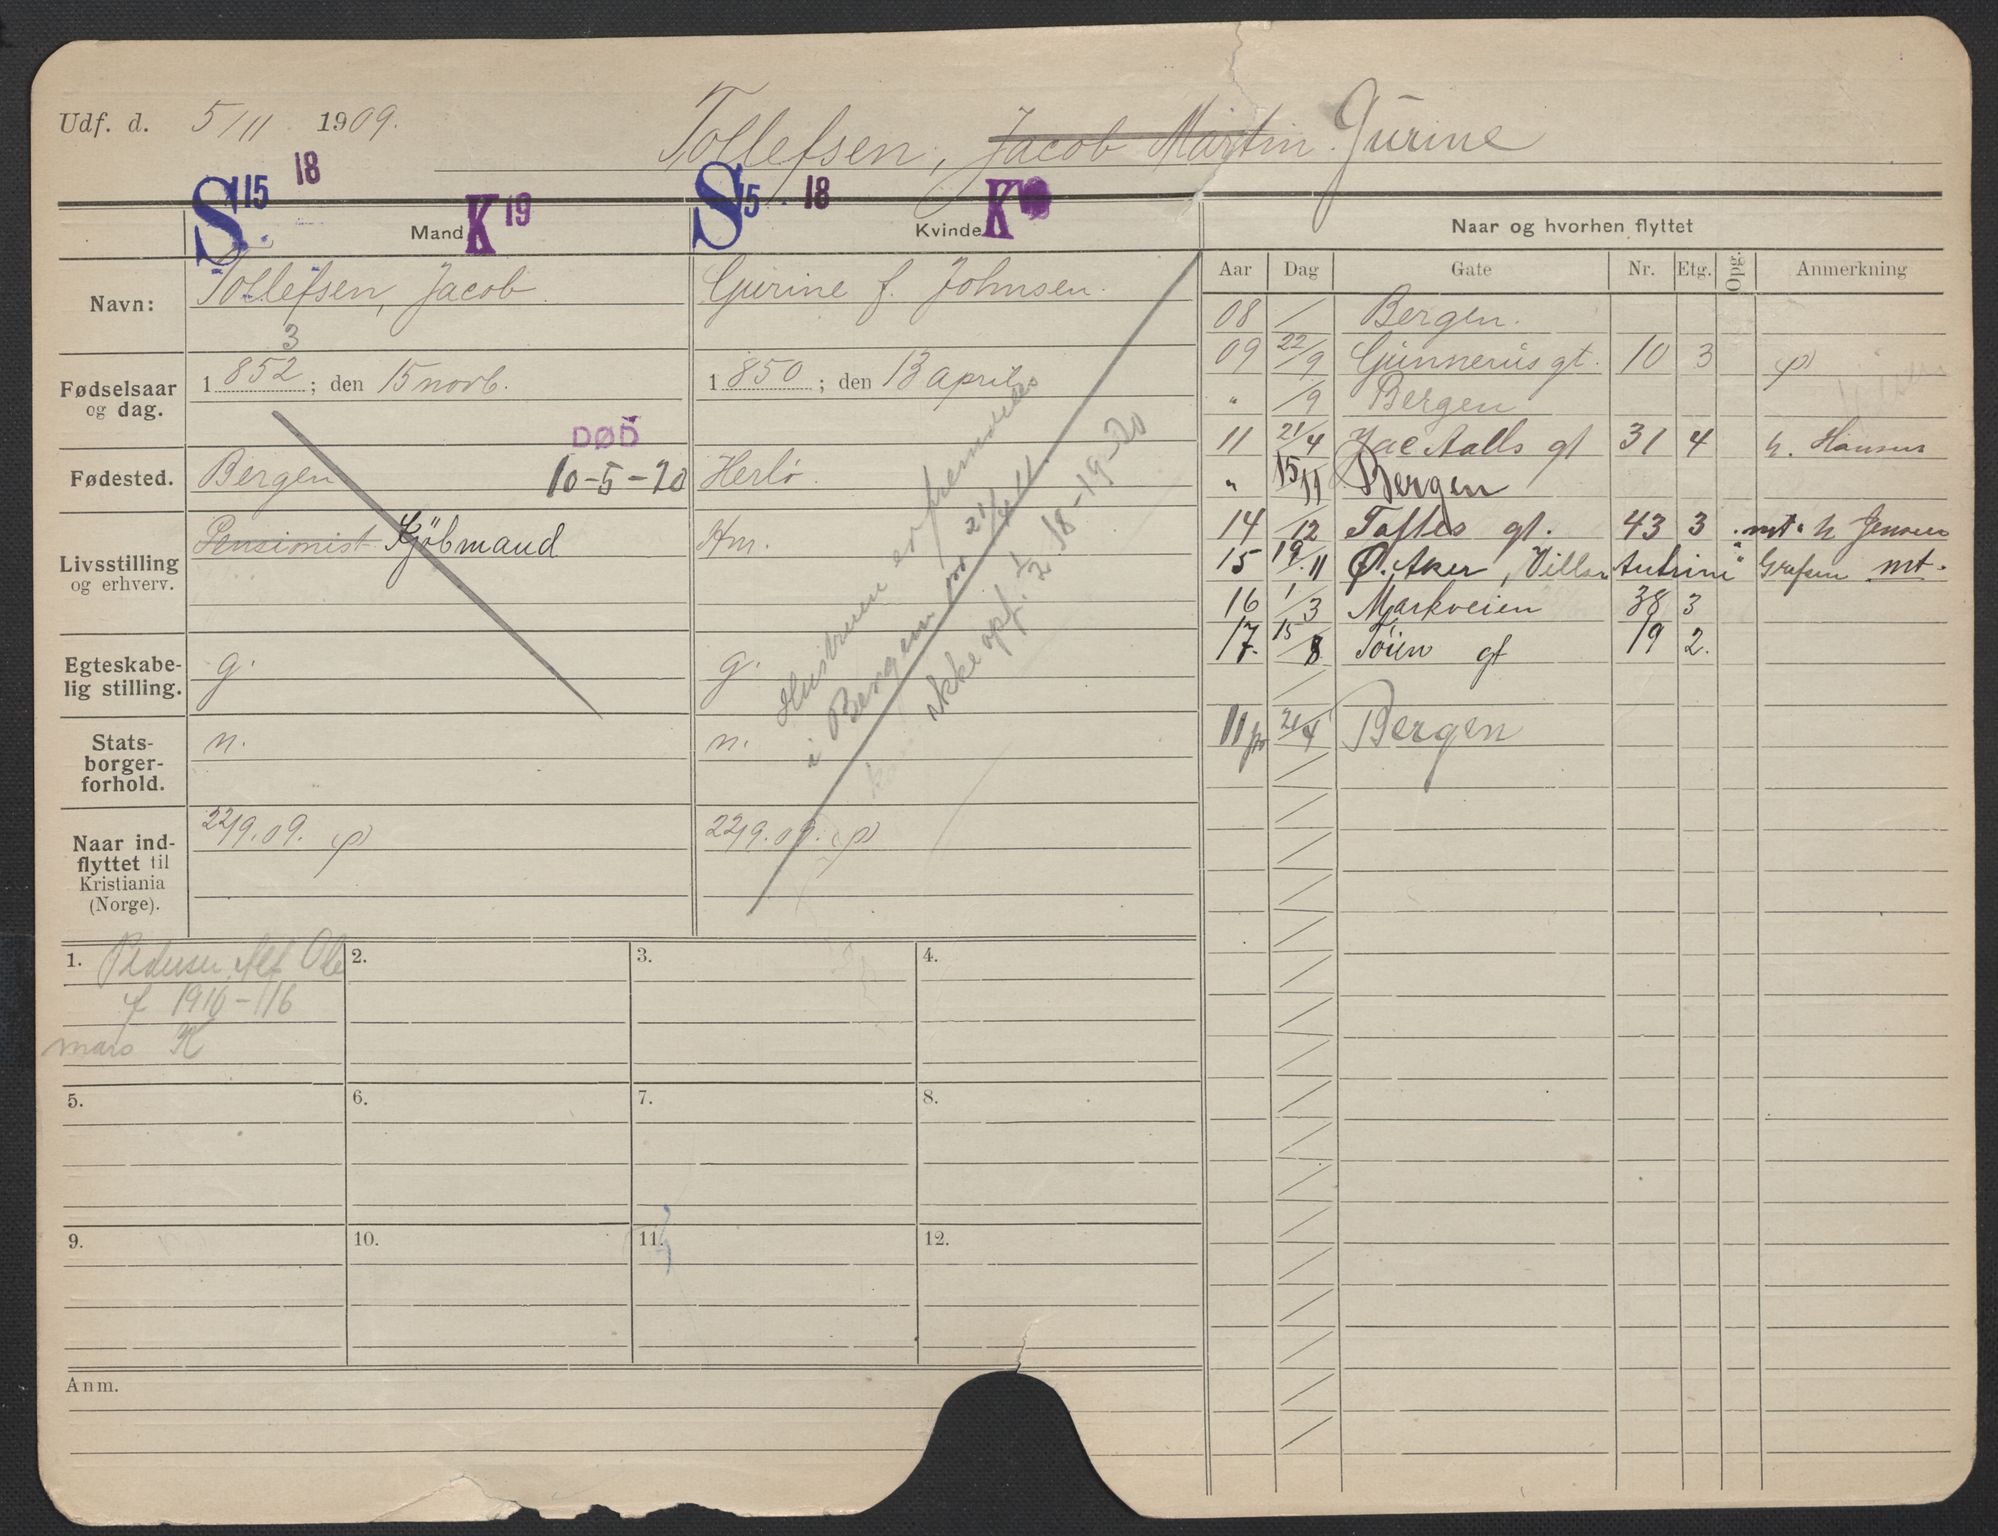 Udf. d. 5/11 1909.
Tollefsen, Jacob Martin. Gurine
S 15 18 K 19
S 15 18 K
Mand
Kvinde
Naar og hvorhen flyttet
Aar Dag Gate Nr. Etg. Opg. Anmerkning
Navn:
Tollefsen, Jacob
Gurine f. Johnsen.
Fødselsaar og dag.
3
1852; den 15 novb.
1850; den 13 april
Fødested.
Bergen
DØD
10-5-20
Herlø.
Livsstilling og erhverv.
Pensionist Kjöbmand
Hm.
Egteskabelig stilling.
g.
g.
Statsborgerforhold.
n.
n.
Naar indflyttet til Kristiania (Norge).
22/9.09. p
22/9.09. p
Hustruen er fremdeles
i Bergen pr 21/4 11.
ikke opf. 1/2 18-19-20
08 / Bergen.
09 22/9 Gunnerus gt. 10 3 p
" /9 Bergen
11 21/4 Jac Aalls gt 31 4 h. Hansen
" 15/11 Bergen
14 /12 Toftes gt. 43 3 mt. h Jensen
15 19/11 Ø. Aker, Villa mt.
16 1/3 Markveien 38 3
17. 15/8 Töien gt 19 2.
11 pr 21/4 Bergen
1. Pedersen, Alf Ole
f 1910-1/6
2.
3.
4.
5.
6.
7.
8.
9.
10.
11.
12.
Anm.